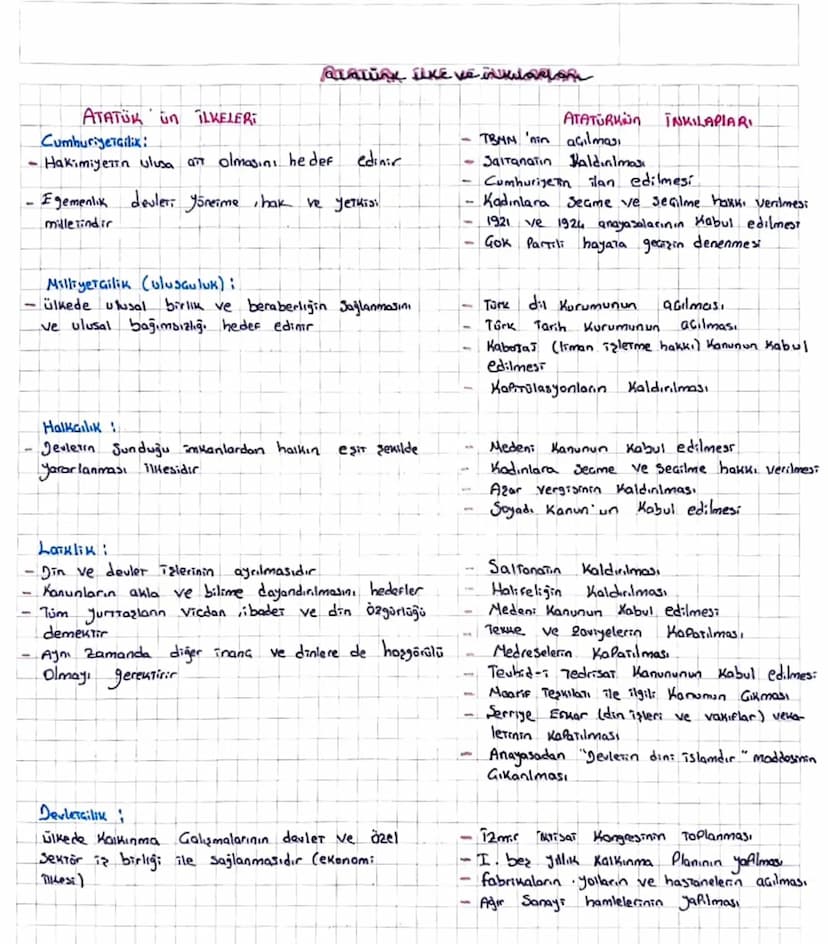 ATATÜRK İLKE VE İNKILAPLARI
ATATÜK'ün İLKELERİ
Cumhuriyetçilik:
- Hakimiyetin ulusa ait olmasını hedef edinir
- Egemenlik devleti yönetme, hak ve yetkisi
milletindir
Milliyetçilik (ulusçuluk):
- ülkede ulusal birlik ve beraberliğin sağlanmasını
ve ulusal bağımsızlığı hedef edinir
Halkçılık:
- Devletin sunduğu imkanlardan halkın eşit şekilde
yararlanması ilkesidir
Laiklik:
- Din ve devlet işlerinin ayrılmasıdır
- Kanunların akla ve bilime dayandırılmasını hedefler
- Tüm yurttaşların vicdan, ibadet ve din özgürlüğü
demektir
- Aynı zamanda diğer inanç ve dinlere de hoşgörülü
olmayı gerektirir
Devletçilik:
ülkede kalkınma çalışmalarının devlet ve özel
sektör iş birliği ile sağlanmasıdır (ekonomi
ilkesi)
ATATÜRKÜN İNKILAPLARI
- TBMM'nin açılması
- Saltanatın kaldırılması
- Cumhuriyetin ilan edilmesi
- Kadınlara seçme ve seçilme hakkı verilmesi
- 1921 ve 1924 anayasalarının kabul edilmesi
- Çok Partili hayata geçişin denenmesi
- Türk dil kurumunun açılması
- Türk Tarih kurumunun açılması
- Kabotaj (liman işletme hakkı) kanunun kabul
edilmesi
- Kapitülasyonların kaldırılması
- Medeni kanunun kabul edilmesi
- Kadınlara seçme ve seçilme hakkı verilmesi
- Aşar vergisinin kaldırılması
- Soyadı kanun'un kabul edilmesi
- Saltanatın kaldırılması
- Halifeliğin kaldırılması
- Medeni kanunun kabul edilmesi
- Tekke ve zaviyelerin kapatılması
- Medreselerin kapatılması
- Tevhid-i Tedrisat kanununun kabul edilmesi
- Maarif Teşkilatı ile ilgili kanunun çıkması
- Şerriye Evkaf (din işleri ve vakıflar) veka-
letinin kapatılması
- Anayasadan "Devletin dini islamdır" maddesinin
çıkarılması
- İzmir iktisat kongresinin toplanması
- I. beş yıllık kalkınma planının yapılması
- fabrikaların, yolların ve hastanelerin açılması
- Ağır sanayi hamlelerinin yapılması